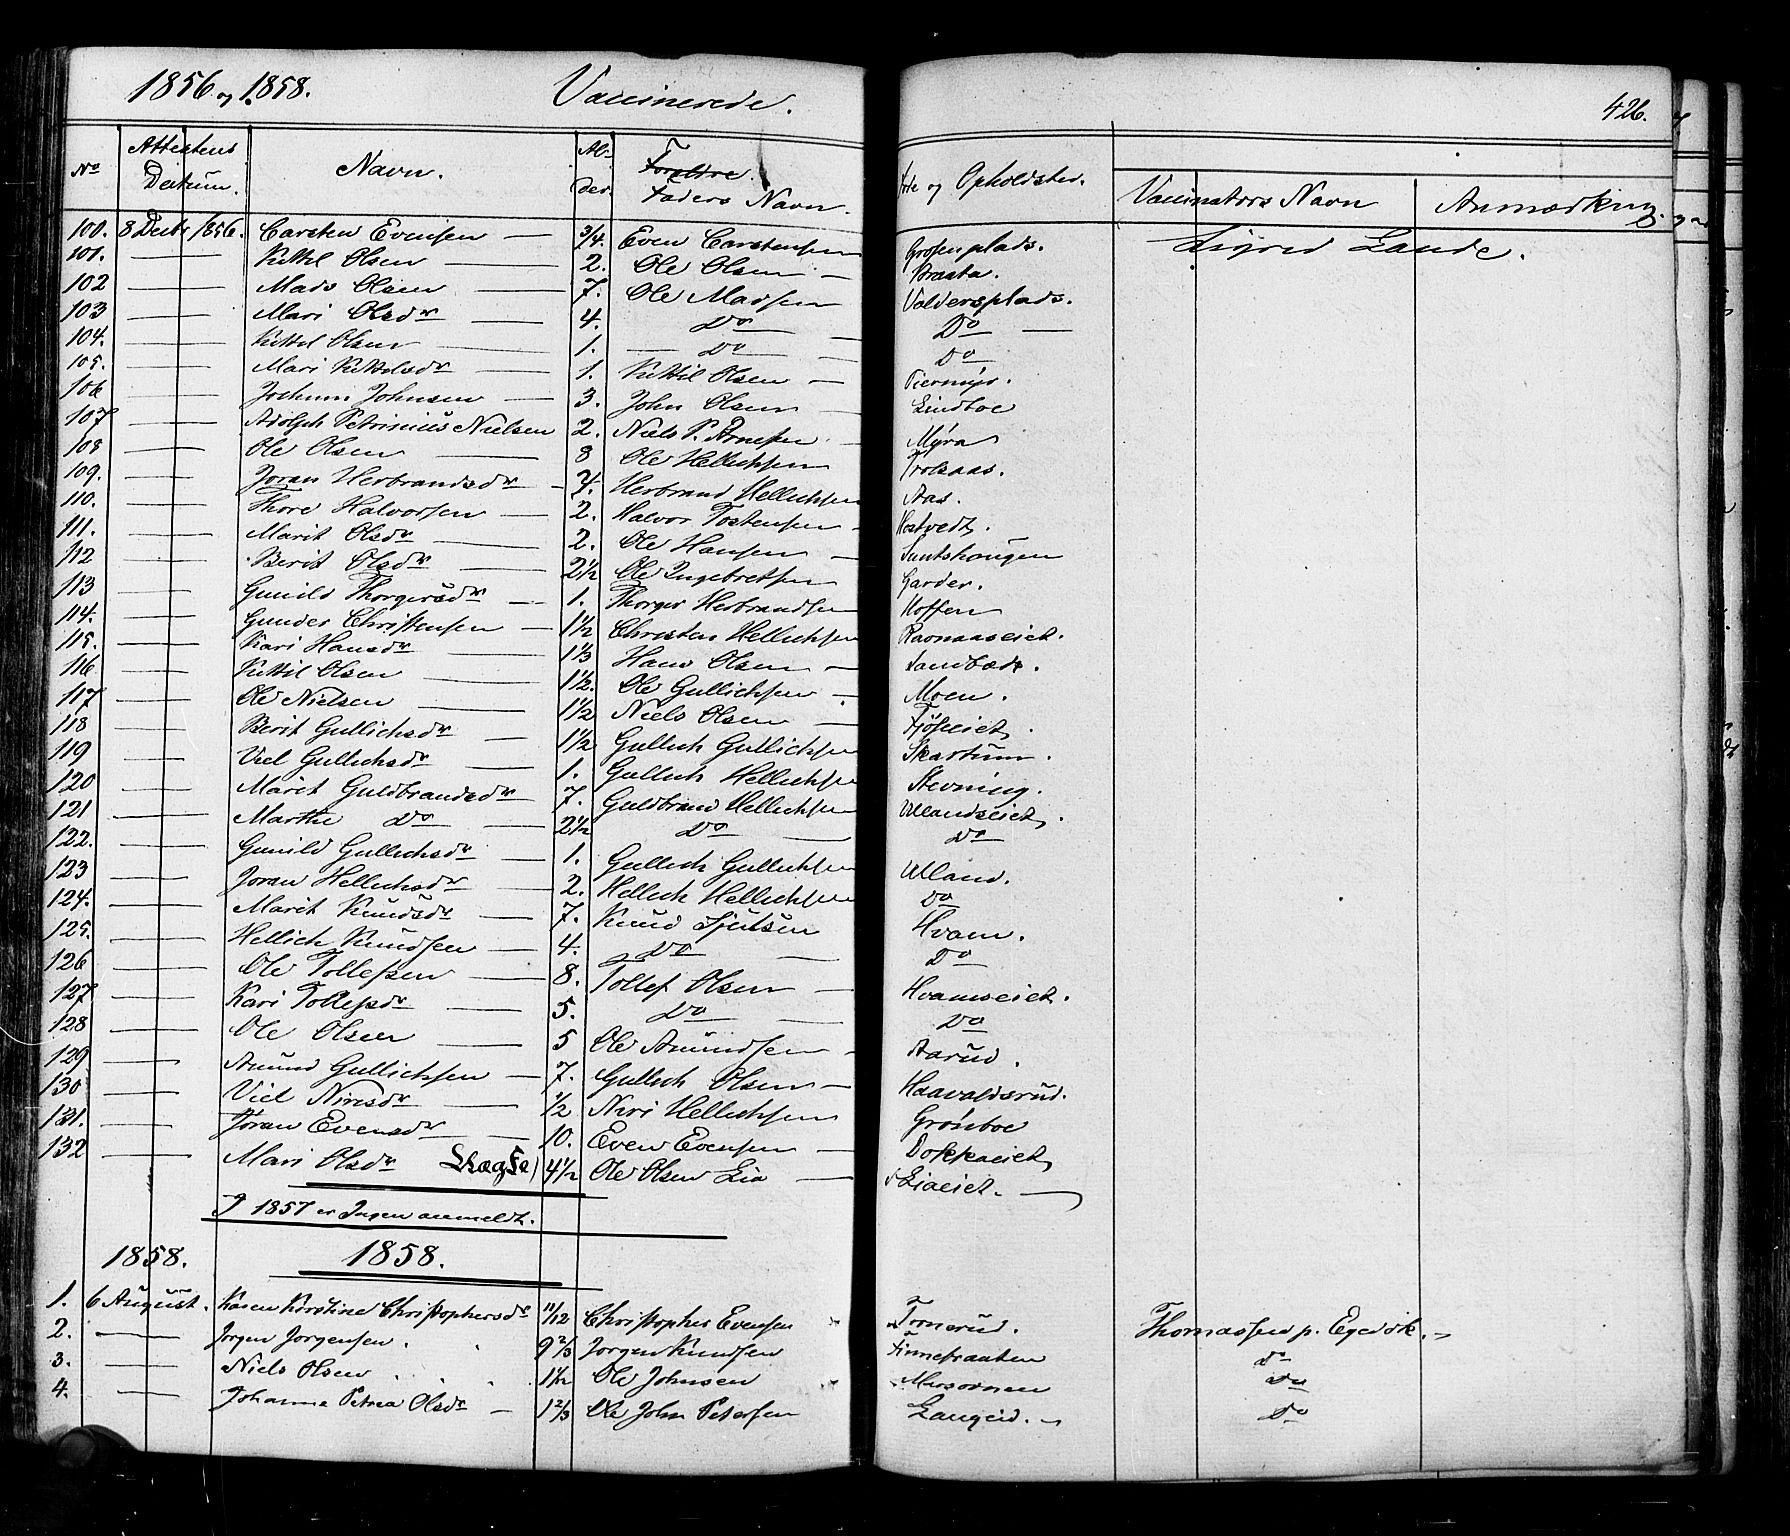 1856 og 1858. Vaccinerede. 426.
No Attestens Datum. Navn. Alder. Forældre. Faders Navn. Føde og Opholdsted. Vaccinators Navn Anmærkning.
100. 8 Decbr 1856. Carsten Evensen — 3/4. Even Carstensen Grosenplads. Sigrid Lande.
101. — Kittil Olsen — 2. Ole Olsen — Braata.
102 — Mads Olsen — 7. Ole Madsen Valdersplads.
103 — Mari Olsdr — 4. Do Do —
104. — Kittel Olsen — 1. — Do — Do
105. — Mari Kittelsdr — 1. Kittil Olsen — Tiermyr.
106 — Jochum Johnsen — 3. John Olsen — Lindboe
107 — Adolph Petrinius Nielsen 2. Niels P. Arnesen. Myra
108 — Ole Olsen — 8 Ole Hellichsen Trolsaas.
109. — Joran Herbrandsdr — 7. Herbrand Hellichsen Aas.
110. — Thore Halvorsen — 2. Halvor Tostensen — Hostvedt.
111. — Marit Olsdr — 2. Ole Hansen —
112 — Berit Olsdr — 2 1/2 Ole Ingebretsen Garder.
113 — Gunild Thorgersdr — 1. Thorger Herbrandsen Hoffen
114. — Gunder Christensen — 1 1/2 Christen Hellichsen Ravnaaseiet.
115. — Kari Hansdr — 1 1/3 Hans Olsen — Sandbæk.
116 — Kittil Olsen — 1 1/2. Ole Gullichsen — Moen.
117 — Ole Nielsen — 1 1/2 Niels Olsen — Fjøseiet.
118 — Berit Gullichsdr — 1 1/2 Gullich Gullichsen Skartum.
119 — Viel Gullichsdr — 1. Gullich Hellichsen Stevning.
120 — Marit Guldbrandsdr 7. Guldbrand Hellichsen Ullandseiet.
121 — Marthe Do — 2 1/2 Do — Do
122. — Gunild Gullichsdr — 1. Gullich Gullichsen Ulland.
123 — Joran Hellichsdr — 2. Hellich Hellichsen Do
124. — Marit Knudsdr — 7. Knud Hvam.
125. — Hellich Knudsen — 4. Do — Do
126 — Ole Tollefsen — 8. Tollef Olsen — Hvamseiet.
127 — Kari Tollefsdr — 5. Do — Do
128 — Ole Olsen — 5 Ole Amundsen — Aarud.
129 — Amund Gullichsen — 7. Gullich Olsen — Haavaldsrud.
130 — Viel Nirisdr — 1/2 Niri Hellichsen Grønboe
131. — Jøran Evensdr — 10. Even Evensen — Dokkaeiet
132 — Mari Olsdr 4 1/2 Ole Olsen Lia — Liaeiet. —
I 1857 er Ingen anmeldt.
1858. 1858.
1. 6 August. Karen Kirstine Christophersdr 11/12 Christopher Evensen Tronrud. Thomassen p. Egedck. —
2. — Jørgen Jorgensen. 9 2/3 Jorgen Knudsen Finnebraaten Do
3. — Niels Olsen 1 1/12 Ole Johnsen Do
4. — Johanne Petrea Olsdr — 1 2/3 Ole John Petersen Langeid. — Do